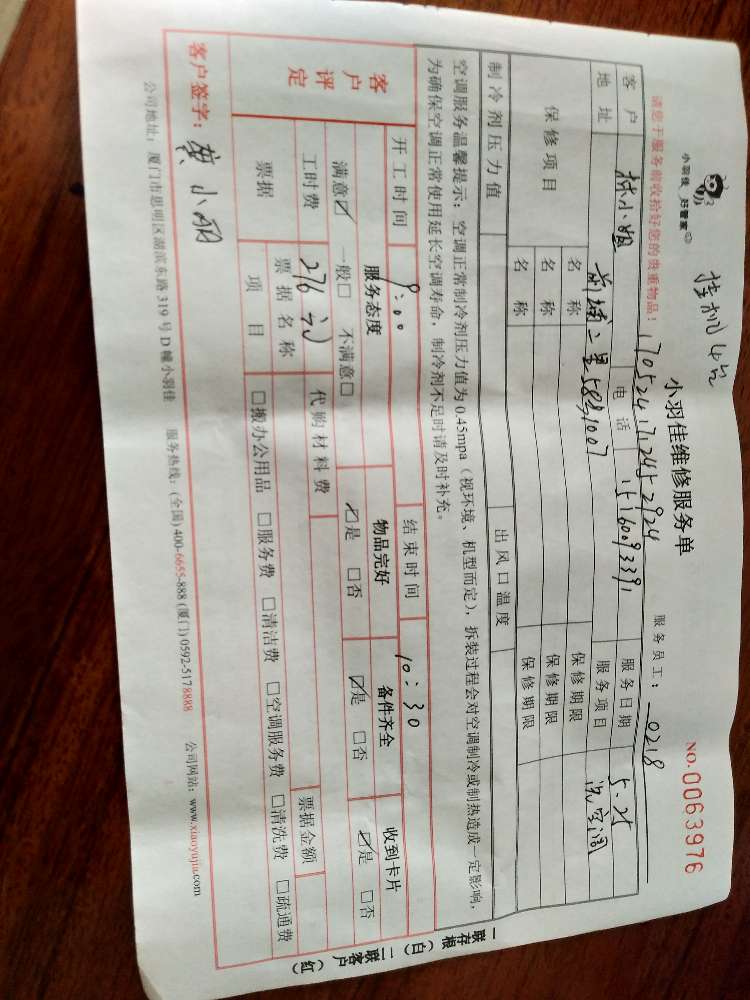 小羽佳 好管家
挂机4台
小羽佳维修服务单
NO.0063976
1705241712452924
服务员工：0218
请您于服务前收拾好您的贵重物品！
客户 林小姐 电话 15160093391 服务日期 5.25
地址 前埔二里58号1007 服务项目 洗空调
保修项目 名称 保修期限
名称 保修期限
名称 保修期限
制冷剂压力值 出风口温度
空调服务温馨提示：空调正常制冷剂压力值为0.45mpa（视环境、机型而定），拆装过程会对空调制冷或制热造成一定影响，
为确保空调正常使用延长空调寿命，制冷剂不足时请及时补充。
开工时间 9:00 结束时间 10:30
客户评定 服务态度 物品完好 备件齐全 收到卡片
满意☑ 一般□ 不满意□ ☑是 □否 ☑是 □否 ☑是 □否
工时费 276元 代购材料费 票据金额
票据 票据名称
项目 □搬办公用品 □服务费 □清洁费 □空调服务费 □清洗费 □疏通费
客户签字：
小羽
公司地址：厦门市思明区湖滨东路319号D幢小羽佳 服务热线：(全国)400-6655-888 (厦门)0592-5178888 公司网站：www.xiaoyujia.com
一联存根（白）二联客户（红）